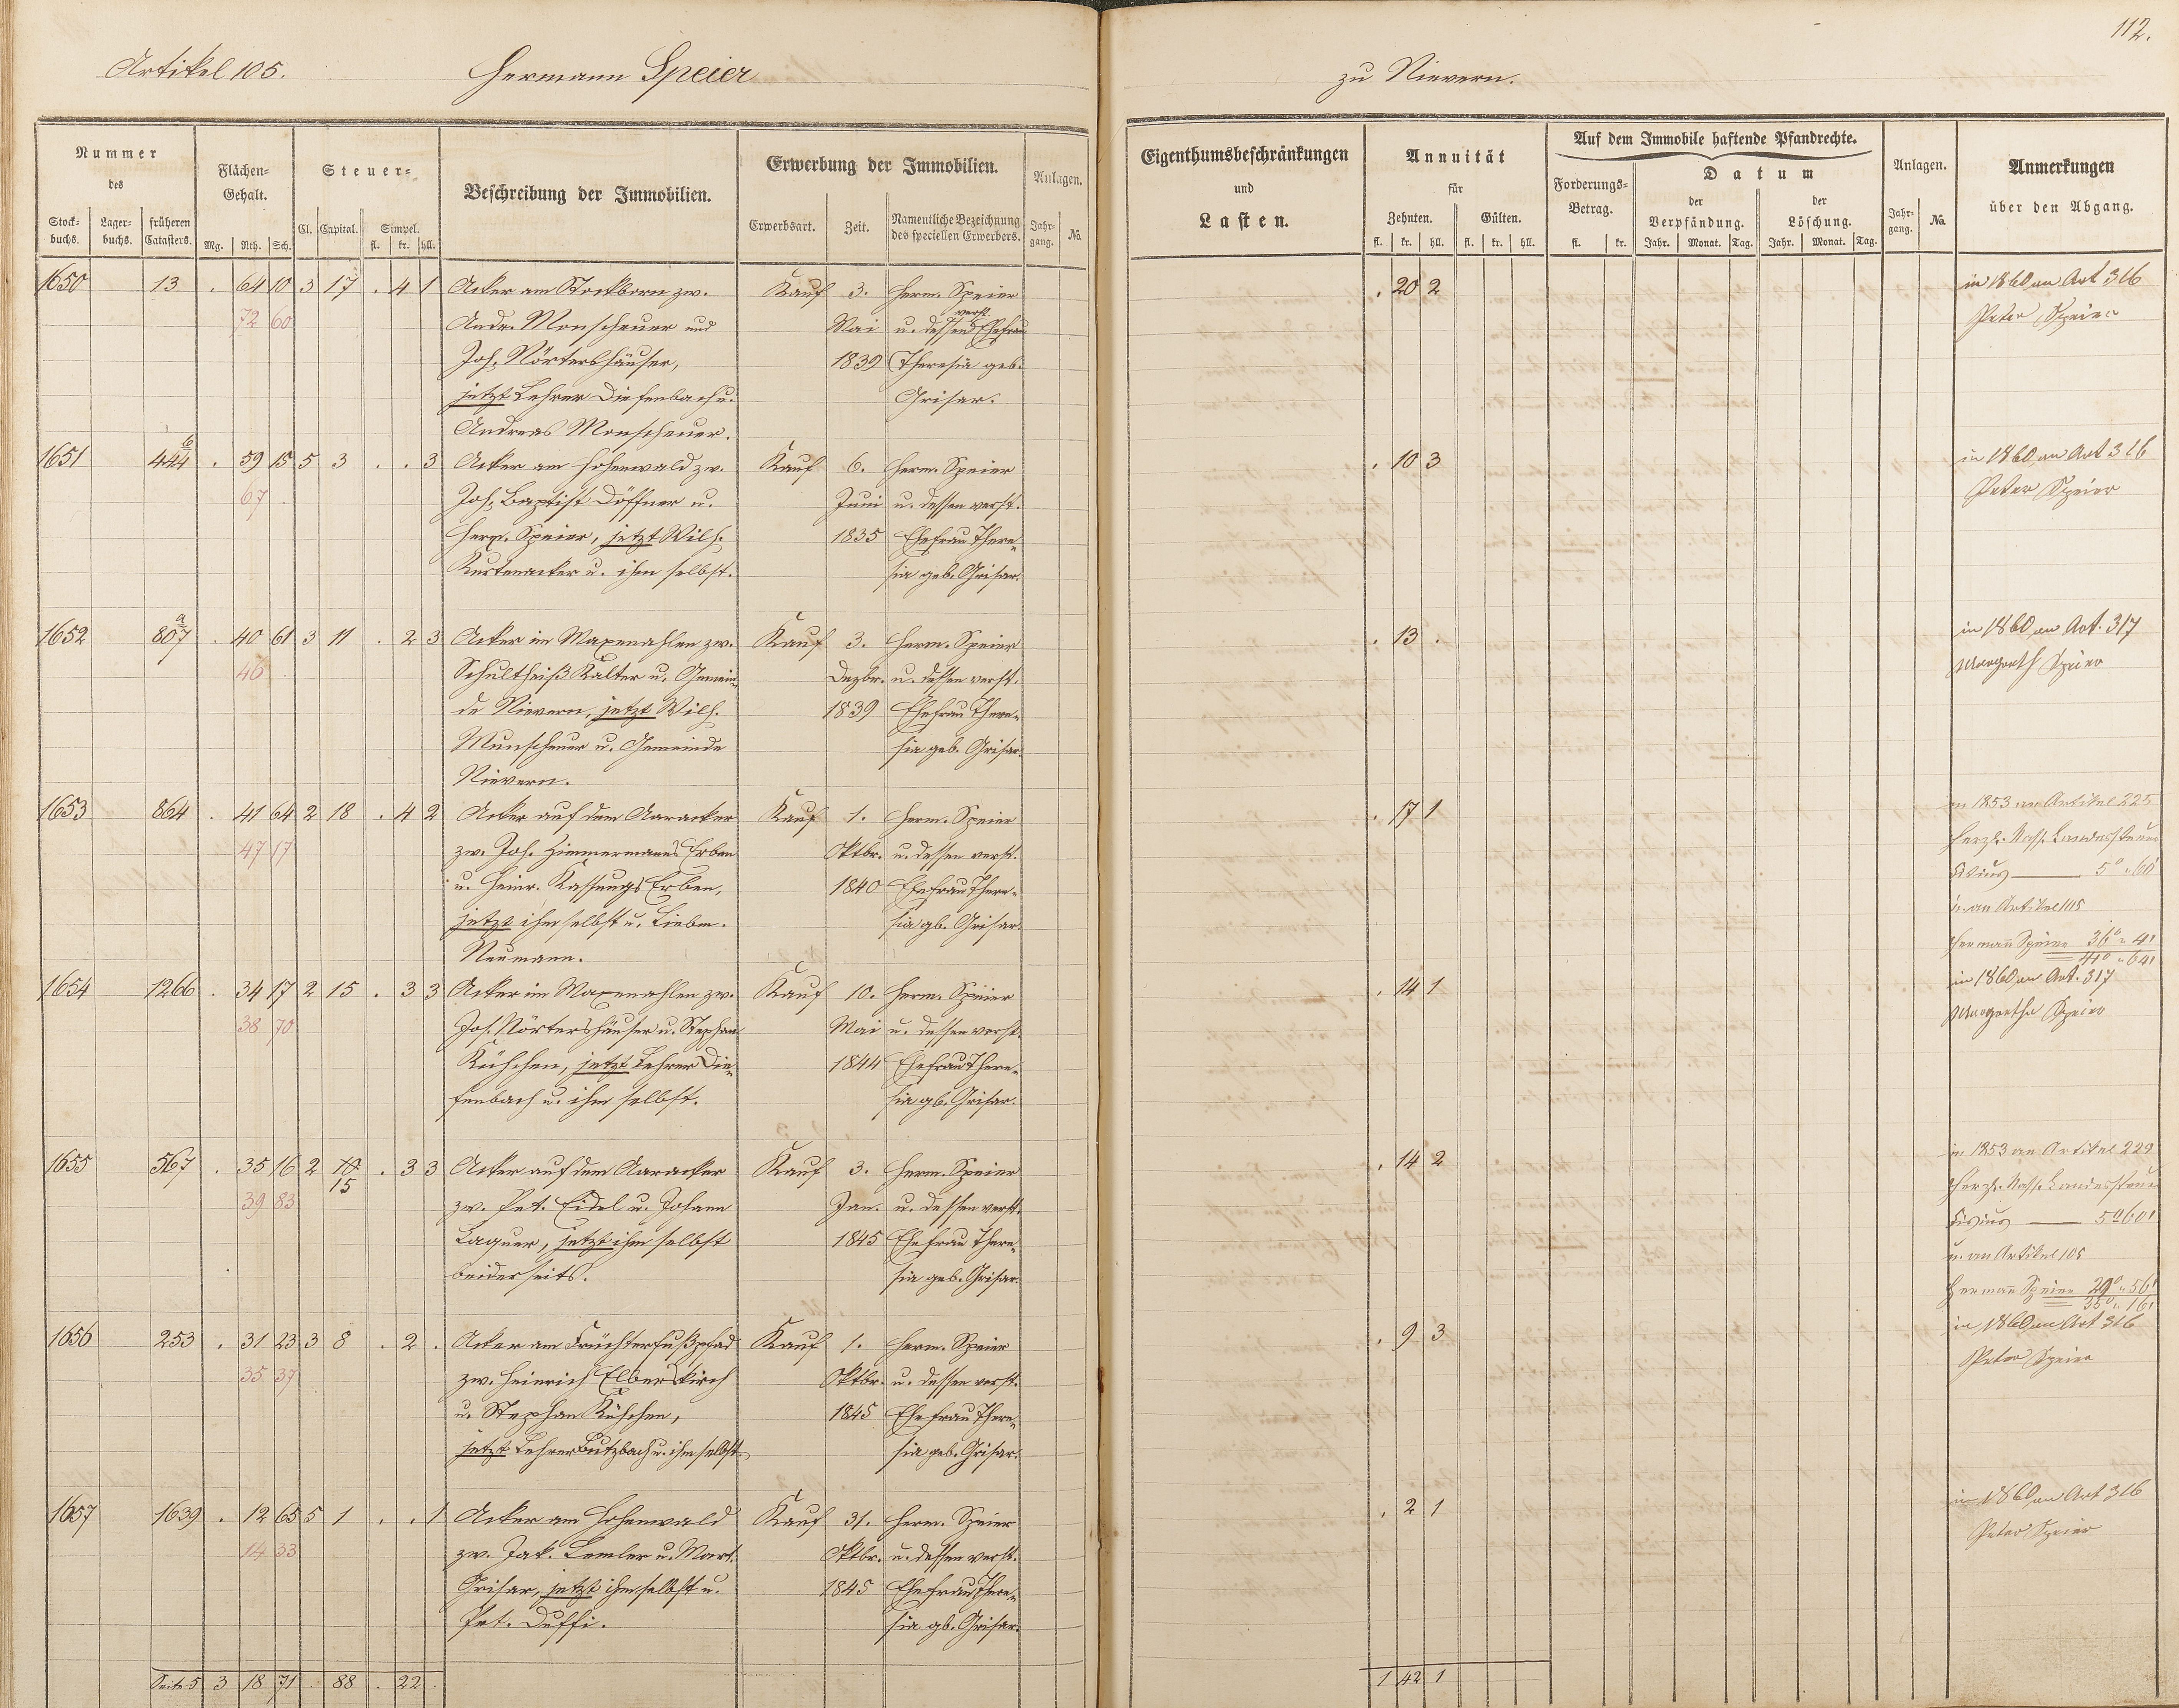 112.
Artikel 105. Hermann Speier zu Nievern.
Nummer des
Stockbuchs. Lagerbuchs. früheren Catasters.
Flächen-Gehalt.
Mg. Rth. Sch.
Steuer-
Cl. Capital. Simpel.
fl. kr. hll.
Beschreibung der Immobilien.
Erwerbung der Immobilien.
Erwerbsart. Zeit. Namentliche Bezeichnung des speciellen Erwerbers.
Anlagen.
Jahrgang. No.
Eigenthumsbeschränkungen
und
Lasten.
Annuität
für
Zehnten. Gülten.
fl. kr. hll. fl. kr. hll.
Auf dem Immobile haftende Pfandrechte.
Forderungs-Betrag.
fl. kr.
Datum
der Verpfändung. der Löschung.
Jahr. Monat. Tag. Jahr. Monat. Tag.
Anlagen.
Jahrgang. No.
Anmerkungen
über den Abgang.
1650 13 . 64 10 3 17 . 4 1 Acker am Stockborn zw. Kauf 3. Herm. Speier . 20 2 in 1860 an Art 316
72 60 Andr. Monscheuer und Mai u. dessen verst. Ehefrau Peter Speier
Joh. Nörtershäuser, 1839 Theresia geb.
jetzt Lehrer Diefenbach u. Grisar.
Andreas Monscheuer.
1651 444 b . 59 15 5 3 . . 3 Acker am Hohenwald zw. Kauf 6. Herm. Speier . 10 3 in 1860 an Art 316
67 Joh. Baptist Döffner u. Juni u. dessen verst. Peter Speier
Herm. Speier, jetzt Wilh. 1835 Ehefrau There-
Kurtenacker u. ihm selbst. sia geb. Grisar.
1652 807 a . 40 61 3 11 . 2 3 Acker im Maxenahlen zw. Kauf 3. Herm. Speier . 13 . in 1860 an Art. 317
46 Schultheiß Kalter u. Gemein- Dezbr. u. dessen verst. Margreth Speier
de Nievern, jetzt Wilh. 1839 Ehefrau There-
Munscheuer u. Gemeinde sia geb. Grisar
Nievern.
1653 864 . 41 64 2 18 . 4 2 Acker auf dem Aaracker Kauf 1. Herm. Speier . 17 1 in 1853 an Artikel 225
47 17 zw. Joh. Zimmermanns Erben Oktbr. u. dessen verst. Herzl. Nass. Landessteuer
u. Heinr. Kassungs Erben, 1840 Ehefrau There- Fiskus 5° 60'
jetzt ihm selbst u. Liebm. sia gb. Grisar. u. an Artikel 115
Neumann. Hermann Speier 36° 4'
41° 64'
1654 1266 . 34 17 2 15 . 3 3 Acker im Maxenahlen zw. Kauf 10. Herm. Speier . 14 1 in 1860 an Art. 317
38 70 Jos. Nörtershäuser u. Stephan Mai u. dessen verst. Margretha Speier
Kühchen, jetzt Lehrer Die- 1844 Ehefrau There-
fenbach u. ihm selbst. sia gb. Grisar.
1655 567 . 35 16 2 10 . 3 3 Acker auf dem Aaracker Kauf 3. Herm. Speier . 14 2 in 1853 an Artikel 229
15
39 83 zw. Pet. Eidel u. Johann Jan. u. dessen verst. Herzl. Nass. Landessteuer
Laquer, jetzt ihm selbst 1845 Ehefrau There- Fiskus 5° 60'
beiderseits. sia geb. Grisar. u. an Artikel 105
Hermann Speier 29° 56'
35° 16'
1656 253 . 31 23 3 8 . 2 . Acker am Früchterfußpfad Kauf 1. Herm. Speier . 9 3 in 1860 an Art 316
35 37 zw. Heinrich Elberskirch Oktbr. u. dessen verst. Peter Speier
u. Stephan Kühchen, 1845 Ehefrau There-
jetzt Lehrer Butzbach u. ihm selbst. sia geb. Grisar.
1657 1639 . 12 65 5 1 . . 1 Acker am Hohenwald Kauf 31. Herm. Speier . 2 1 in 1860 an Art 316
14 33 zw. Jak. Lemler u. Mart. Oktbr. u. dessen verst. Peter Speier
Grisar, jetzt ihm selbst u. 1845 Ehefrau There-
Pet. Duffi. sia gb. Grisar.
Seite 5 3 18 71 . 88 . 22 . 1 42 1